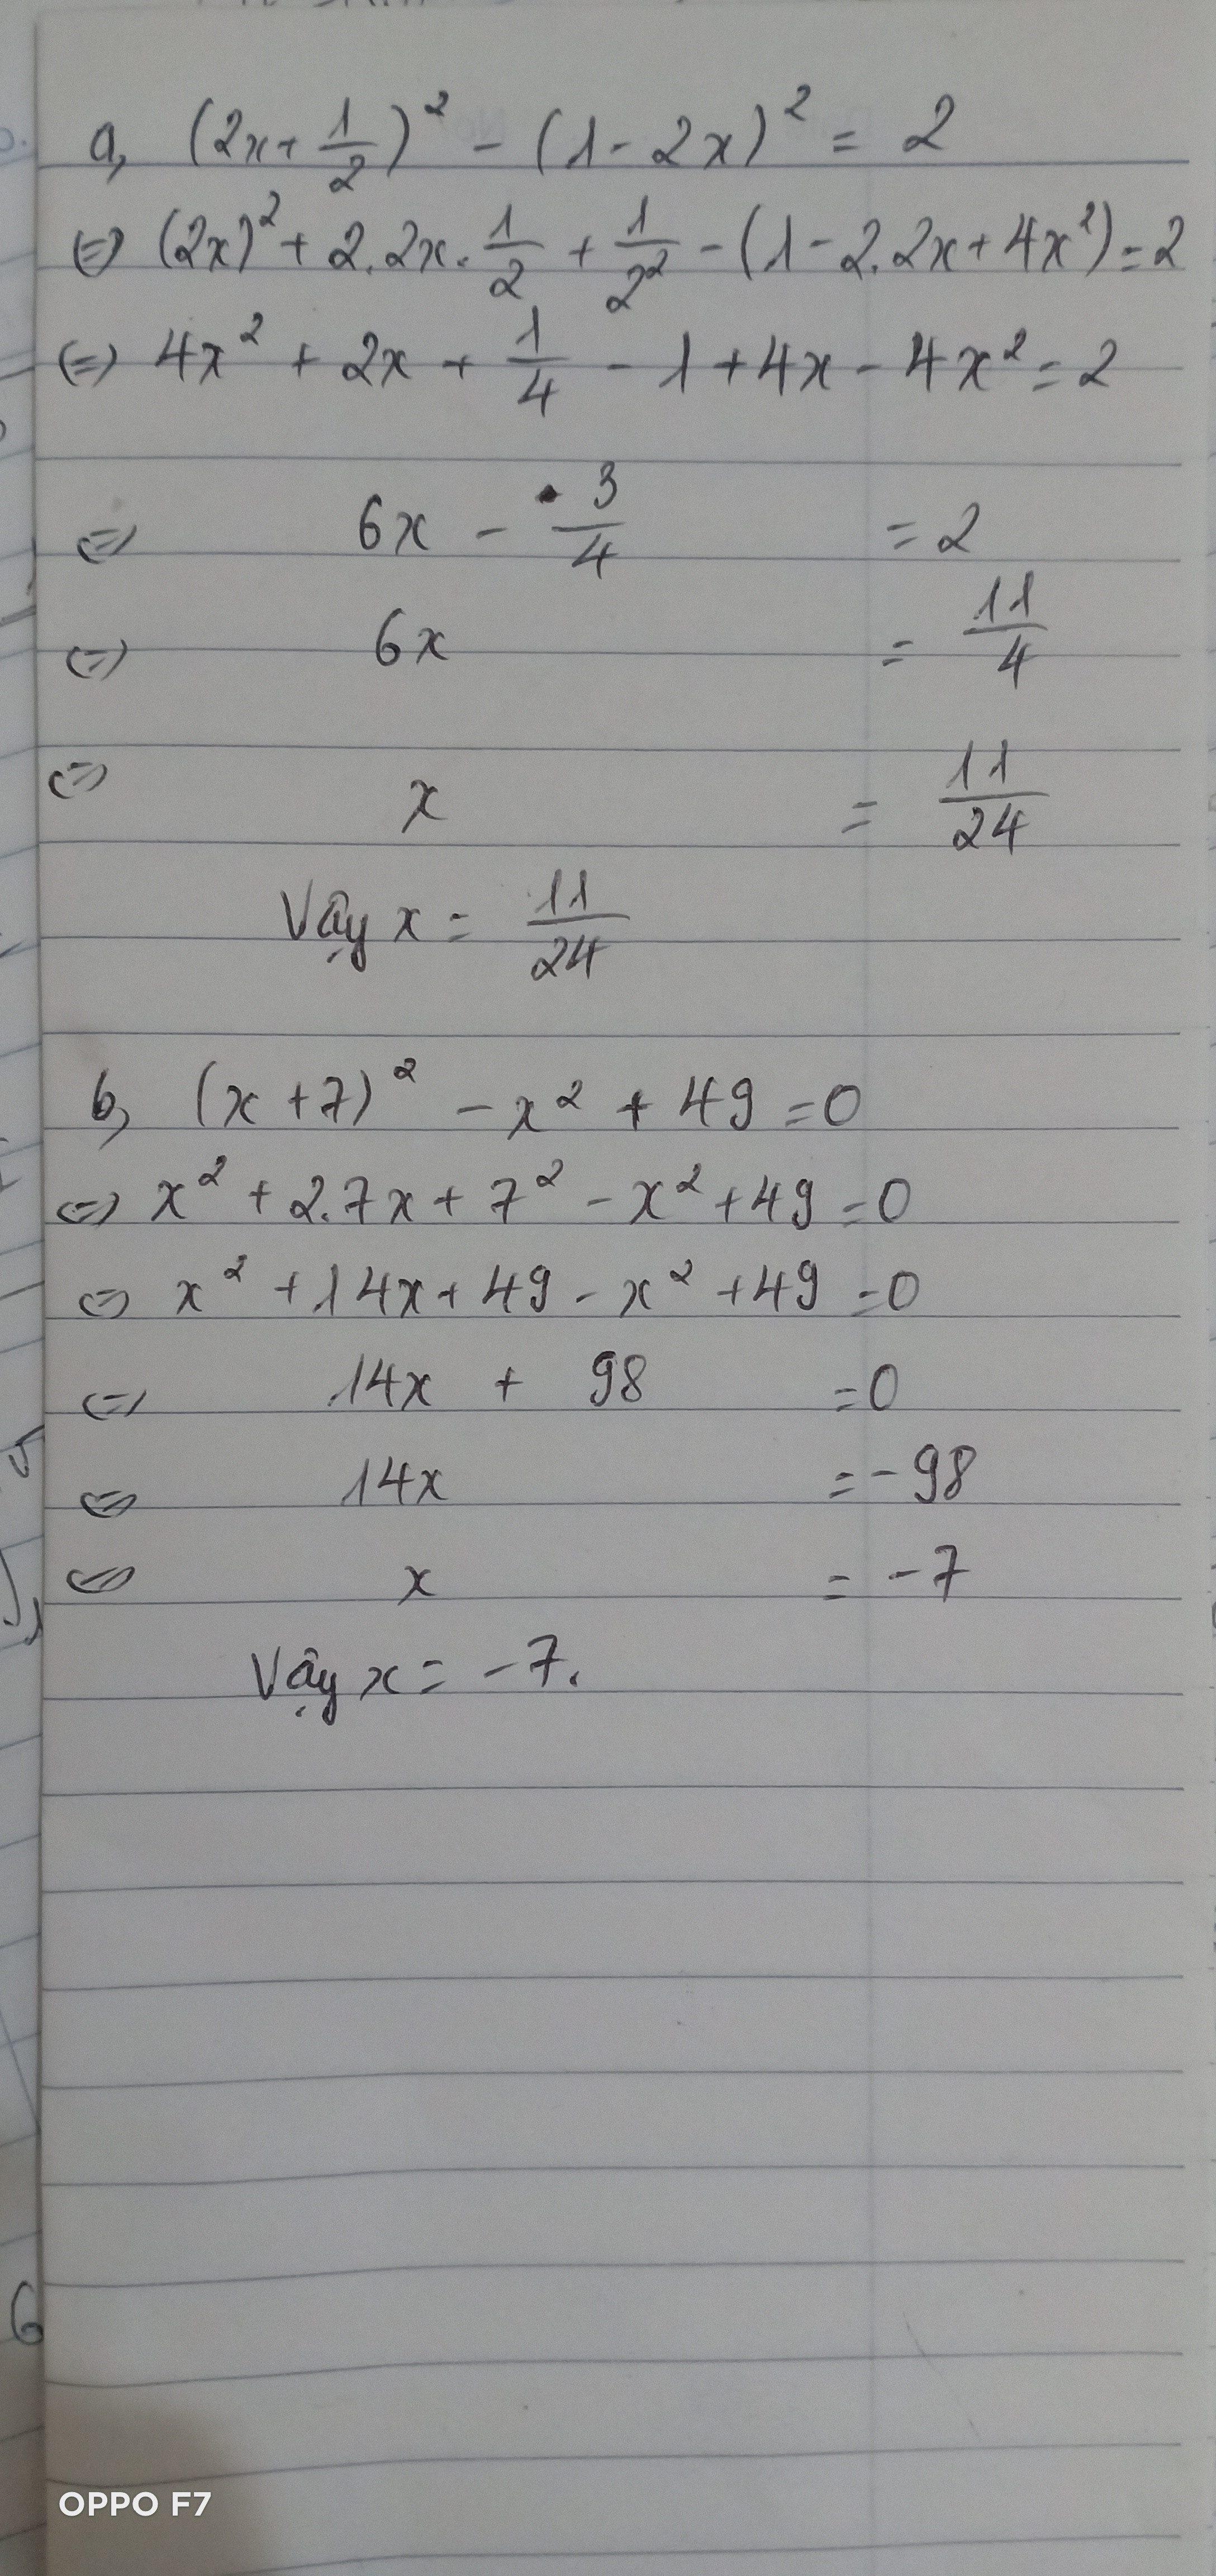 a, (2x + 1/2)² - (1 - 2x)² = 2
(=) (2x)² + 2.2x.1/2 + 1/2² - (1 - 2.2x + 4x²) = 2
(=) 4x² + 2x + 1/4 - 1 + 4x - 4x² = 2
(=) 6x - 3/4 = 2
(=) 6x = 11/4
(=) x = 11/24
Vậy x = 11/24
b, (x + 7)² - x² + 49 = 0
(=) x² + 2.7x + 7² - x² + 49 = 0
(=) x² + 14x + 49 - x² + 49 = 0
(=) 14x + 98 = 0
(=) 14x = -98
(=) x = -7
Vậy x = -7.
6
OPPO F7